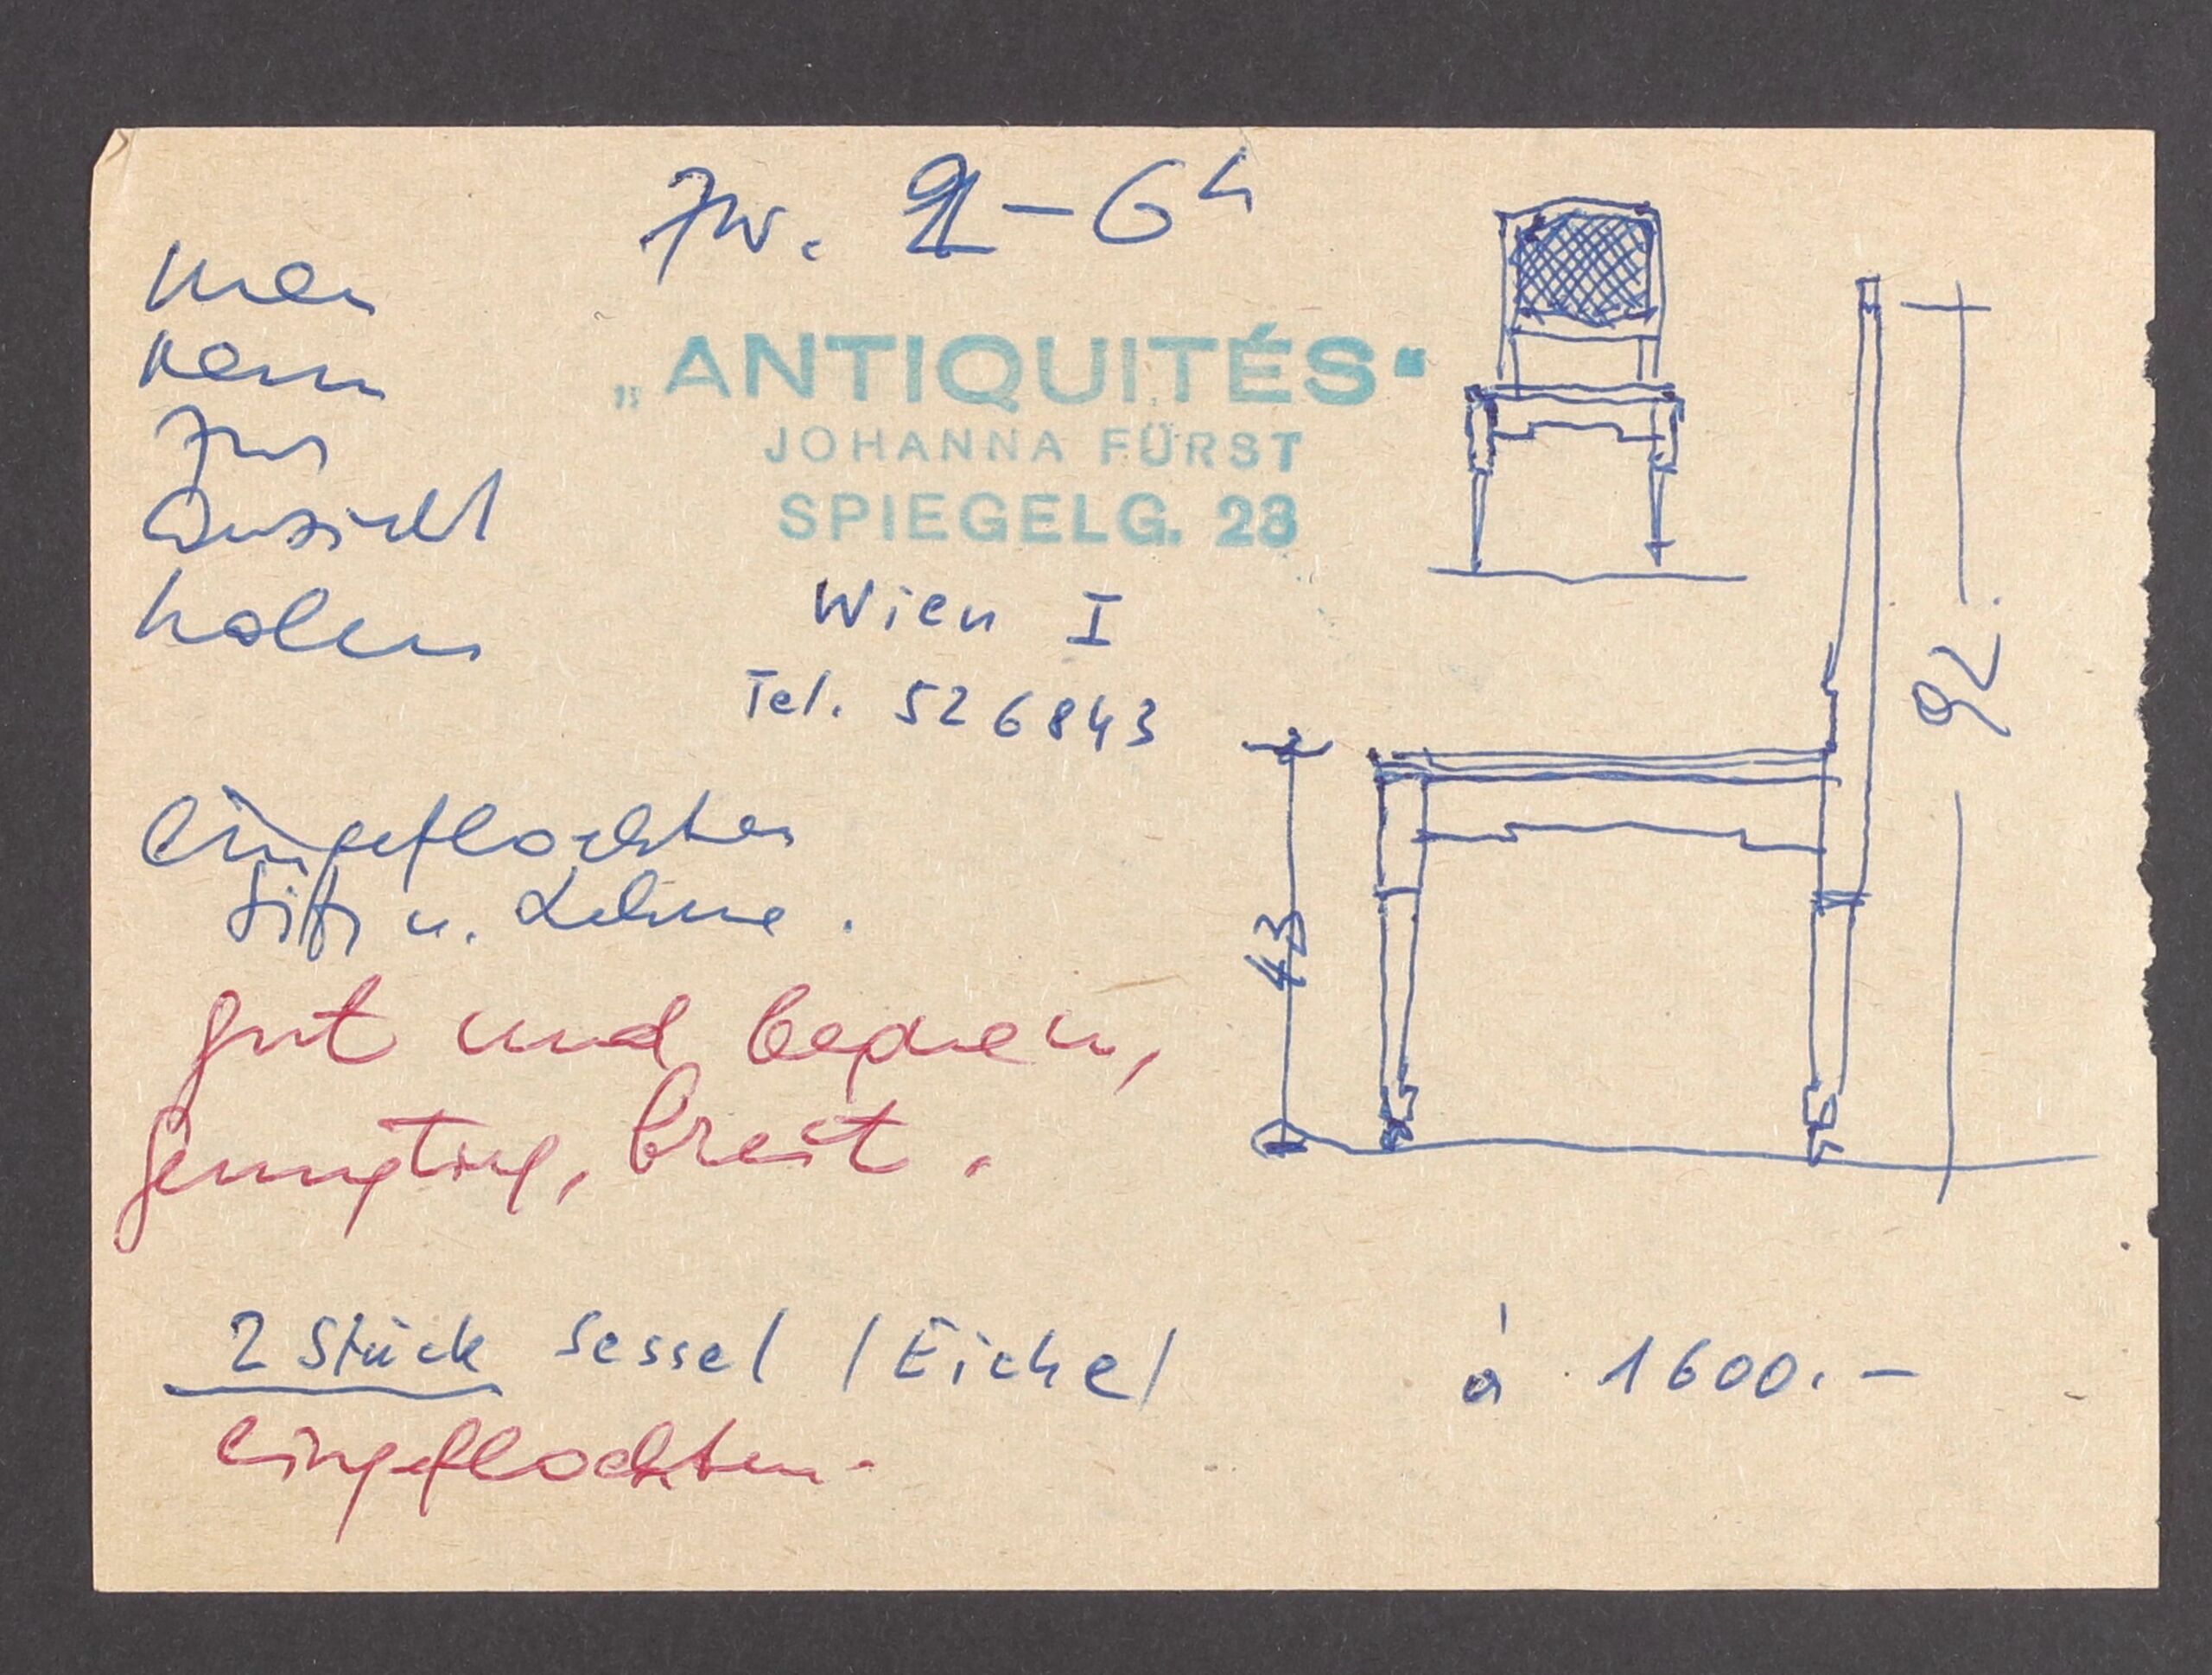 zw. 2-6h
man
kann
zur
Ansicht
holen
„ANTIQUITÉS“
JOHANNA FÜRST
SPIEGELG. 23
Wien I
Tel. 526843
92
43
eingeflochten
Sitz u. Lehne.
gut und bequem,
günstig, breit.
2 Stück Sessel /Eiche/ à 1600.-
eingeflochten.